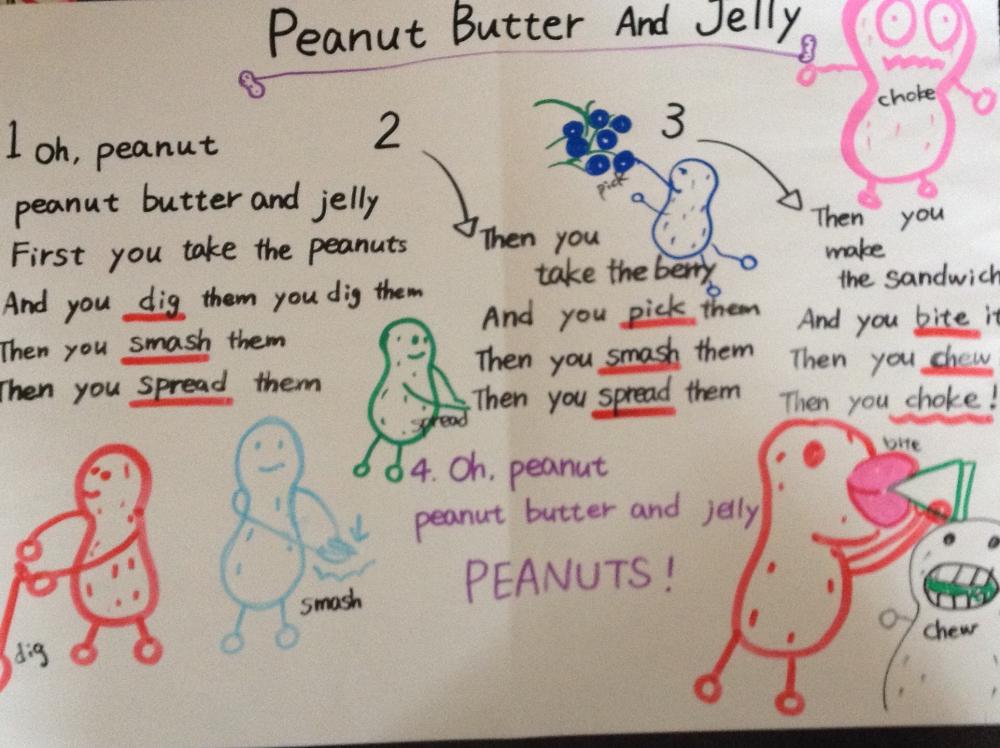 Peanut Butter And Jelly
1 Oh, peanut
peanut butter and jelly
First you take the peanuts
And you dig them you dig them
Then you smash them
Then you spread them
2
Then you
take the berry
And you pick them
Then you smash them
Then you spread them
3
Then you
make
the sandwich
And you bite it
Then you chew
Then you choke!
4. Oh, peanut
peanut butter and jelly
PEANUTS!
choke
pick
spread
dig
smash
bite
chew